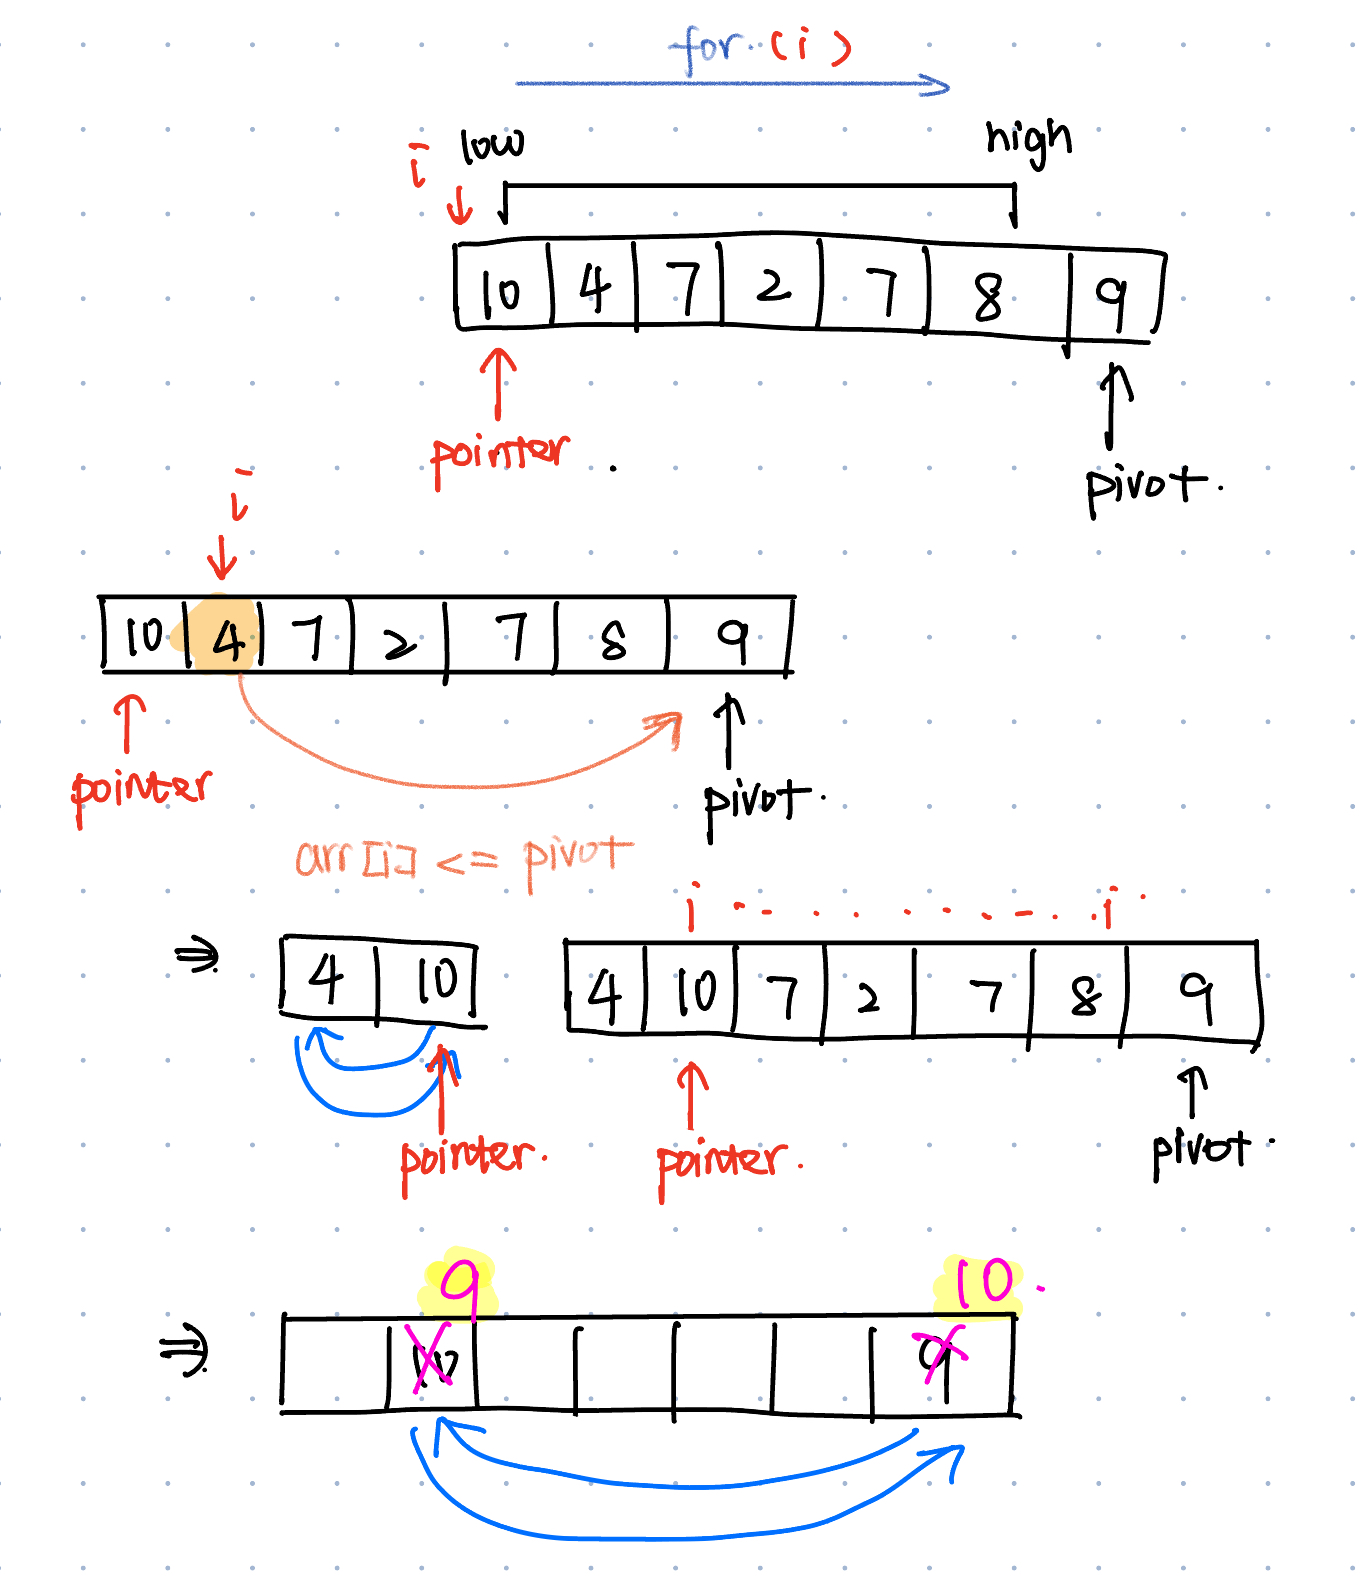 for (i)
i low high
10 4 7 2 7 8 9
pointer.
pivot.
i
10 4 7 2 7 8 9
pointer
pivot.
arr[i] <= pivot
i i
⇒ 4 10 4 10 7 2 7 8 9
pointer. pointer. pivot.
9 10.
⇒ 10 9